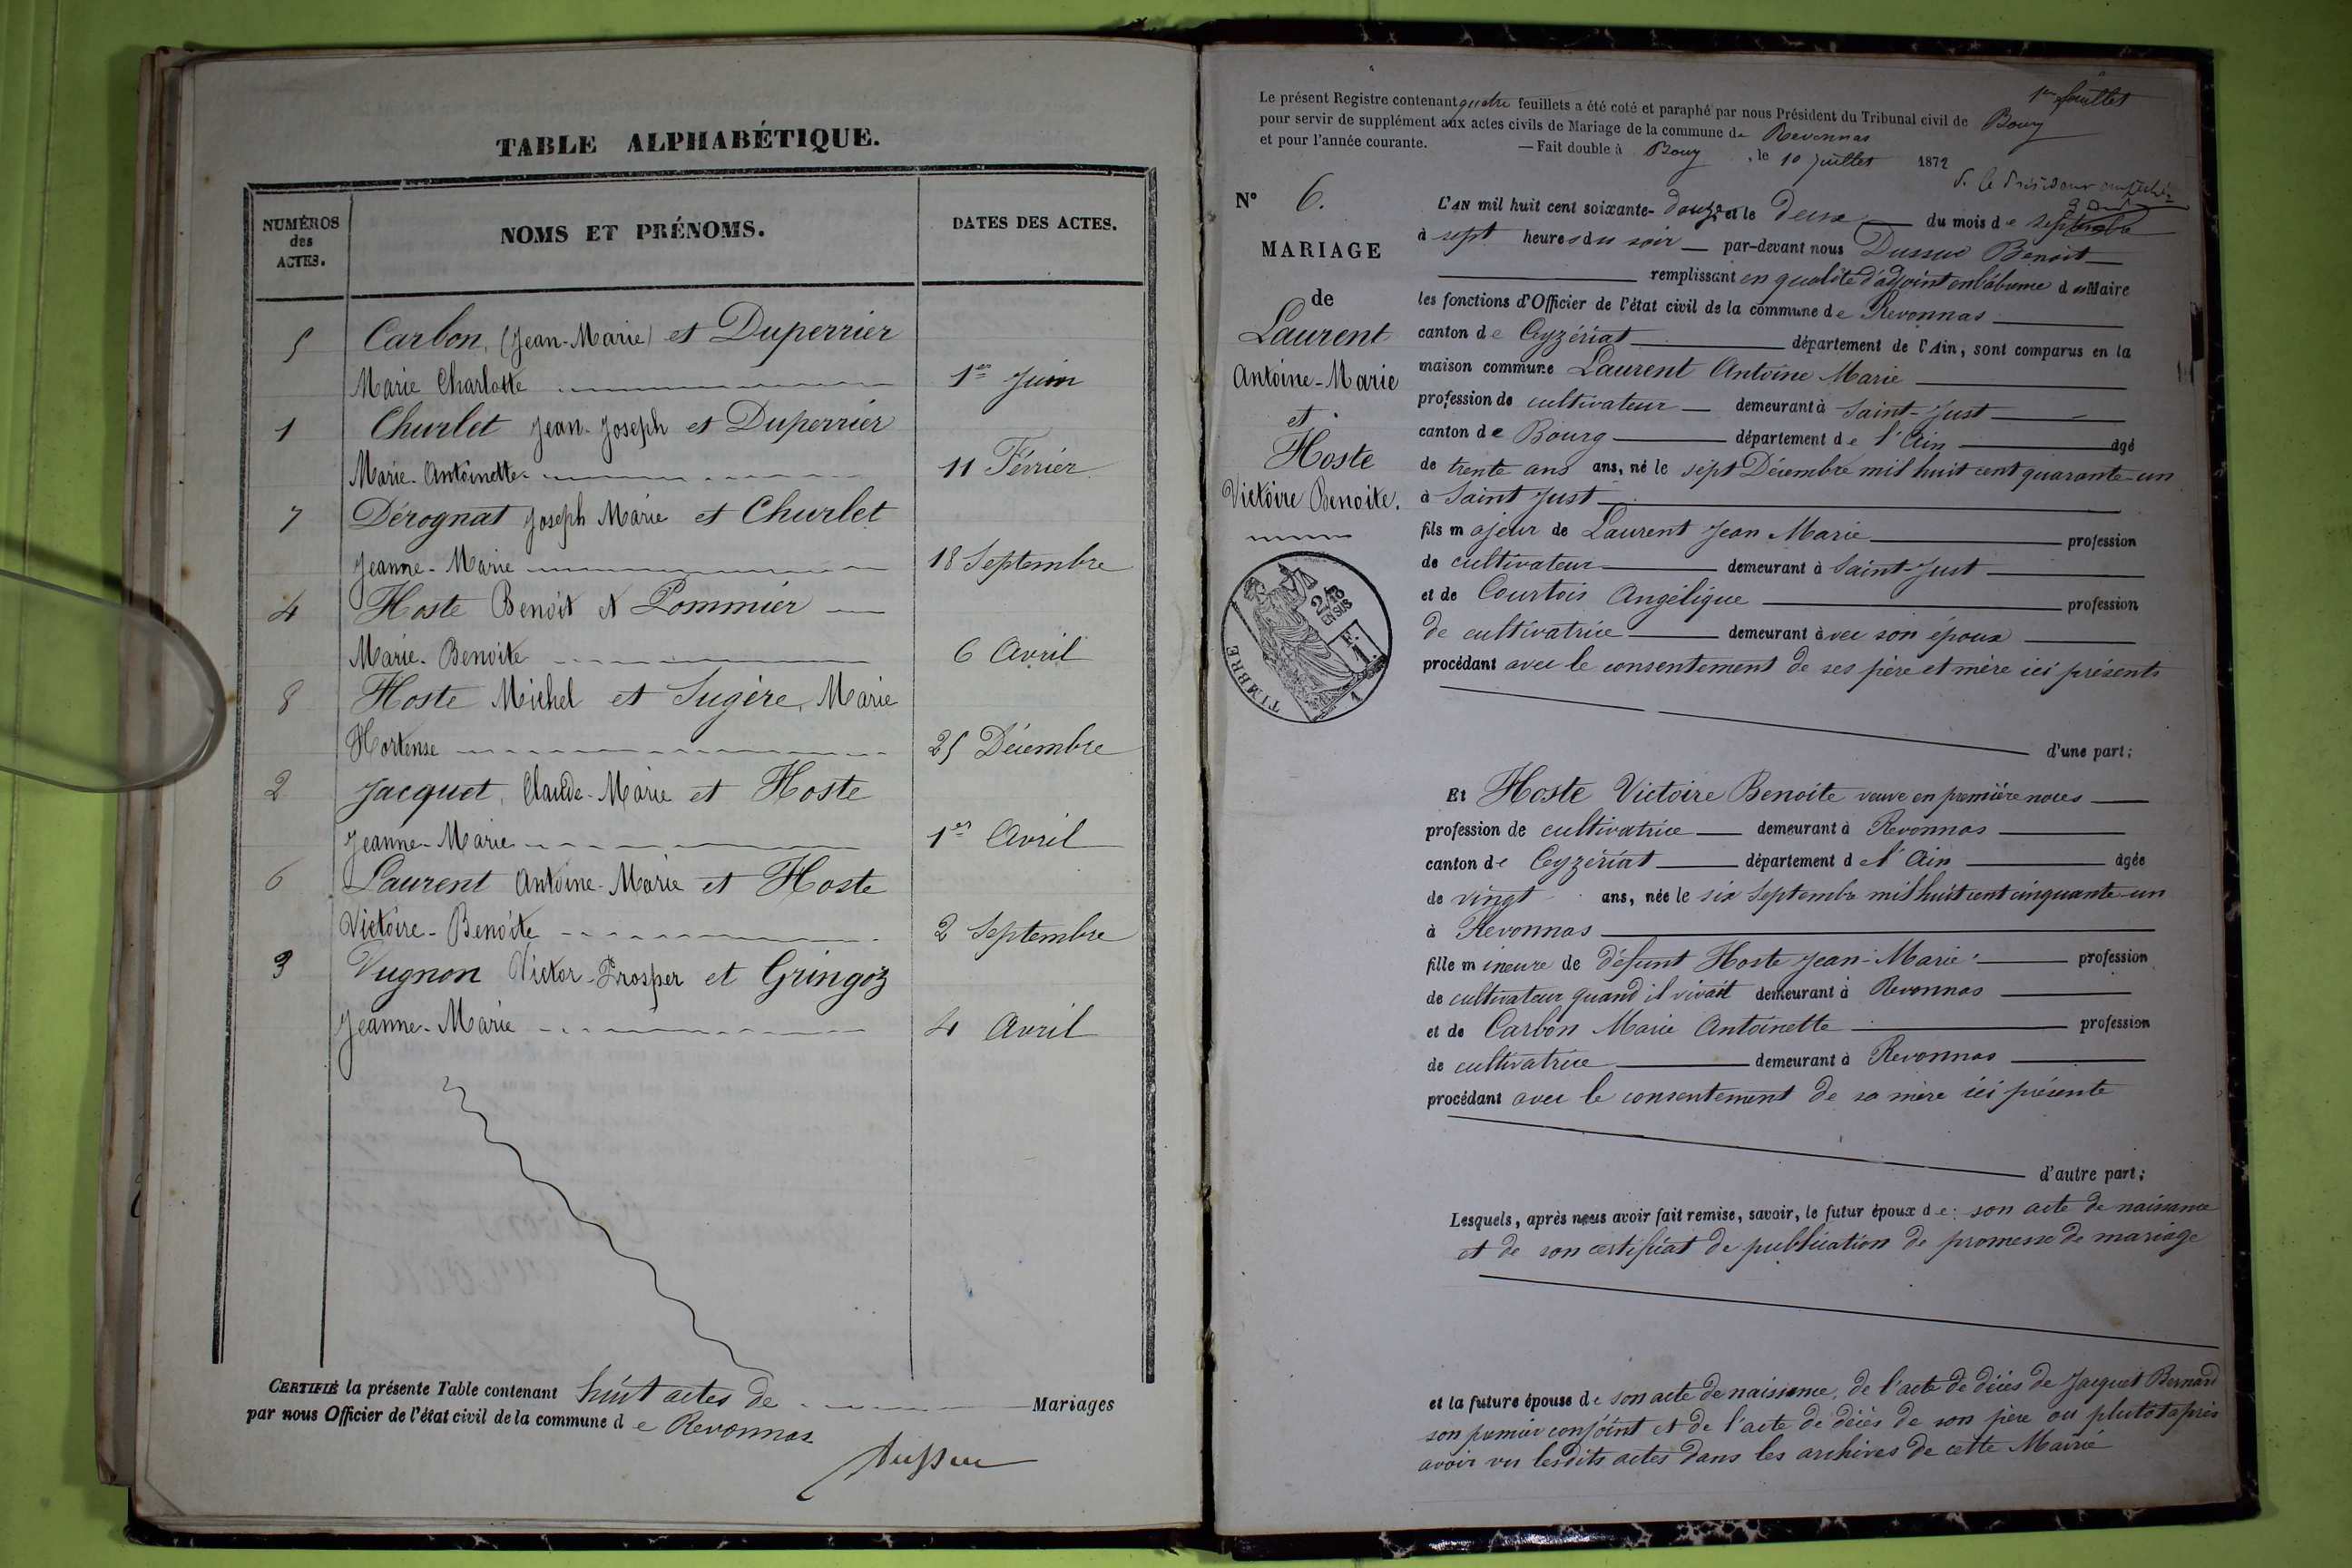 TABLE ALPHABÉTIQUE.
NUMÉROS des ACTES.
NOMS ET PRÉNOMS.
DATES DES ACTES.
5 Carbon, (Jean-Marie) et Duperrier
Marie Charlotte 1er Juin
1 Churlet Jean-Joseph et Duperrier
Marie-Antoinette 11 Février
7 Dérognat Joseph Marie et Churlet
Jeanne-Marie 18 Septembre
4 Hoste Benoit et Pommier
Marie-Benoite 6 Avril
8 Hoste Michel et Sugère, Marie
Hortense 25 Décembre
2 Jacquet, Claude-Marie et Hoste
Jeanne-Marie 1er Avril
6 Laurent Antoine-Marie et Hoste
Victoire-Benoite 2 Septembre
3 Vugnon Victor-Prosper et Gringoz
Jeanne-Marie 4 Avril
CERTIFIÉ la présente Table contenant huit actes de Mariages
par nous Officier de l'état civil de la commune de Revonnas
Dussuc
1er feuillet
Le présent Registre contenant quatre feuillets a été coté et paraphé par nous Président du Tribunal civil de Bourg
pour servir de supplément aux actes civils de Mariage de la commune de Revonnas
et pour l'année courante. — Fait double à Bourg, le 10 Juillet 1872
N° 6.
MARIAGE
de
Laurent
Antoine-Marie
et
Hoste
Victoire Benoite.
TIMBRE
2/10
EN SUS
L'AN mil huit cent soixante-douze et le deux du mois de septembre
à sept heures du soir par-devant nous Dussuc Benoit
remplissant en qualité d'adjoint en l'absence du Maire
les fonctions d'Officier de l'état civil de la commune de Revonnas
canton de Ceyzériat département de l'Ain, sont comparus en la
maison commune Laurent Antoine Marie
profession de cultivateur demeurant à Saint-Just
canton de Bourg département de l'Ain âgé
de trente ans ans, né le sept Décembre mil huit cent quarante-un
à Saint Just
fils majeur de Laurent Jean Marie profession
de cultivateur demeurant à Saint-Just
et de Courtois Angélique profession
de cultivatrice demeurant avec son époux
procédant avec le consentement de ses père et mère ici présents
d'une part;
Et Hoste Victoire Benoite veuve en première noces
profession de cultivatrice demeurant à Revonnas
canton de Ceyzériat département de l'Ain âgée
de vingt ans, née le six Septembre mil huit cent cinquante-un
à Revonnas
fille mineure de défunt Hoste Jean-Marie profession
de cultivateur quand il vivait demeurant à Revonnas
et de Carbon Marie Antoinette profession
de cultivatrice demeurant à Revonnas
procédant avec le consentement de sa mère ici présente
d'autre part;
Lesquels, après nous avoir fait remise, savoir, le futur époux de: son acte de naissance
et de son certificat de publication de promesse de mariage
et la future épouse de son acte de naissance, de l'acte de décès de Jacquet Bernard
son premier conjoint et de l'acte de décès de son père ou plutot après
avoir vu lesdits actes dans les archives de cette Mairie